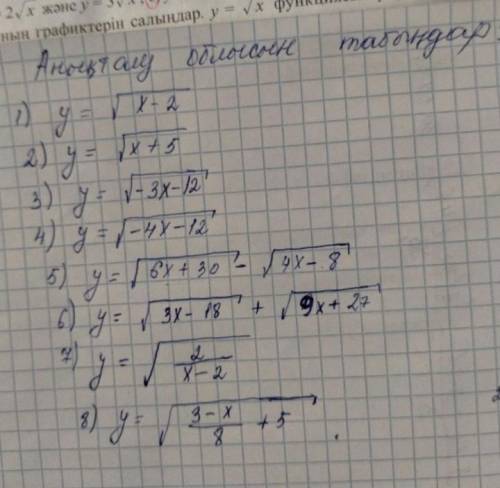 2√x және y = 3√x
ның графиктерін салыңдар. y = √x
Анықталу облысын табыңдар
1) y = √(x - 2)
2) y = √(x + 5)
3) y = √(-3x-12)
4) y = √(-4x-12)
5) y = √(6x + 30) - √(4x - 8)
6) y = √(3x - 18) + √(9x + 27)
7) y = √(2/(x-2))
8) y = √((3-x)/8 + 5)